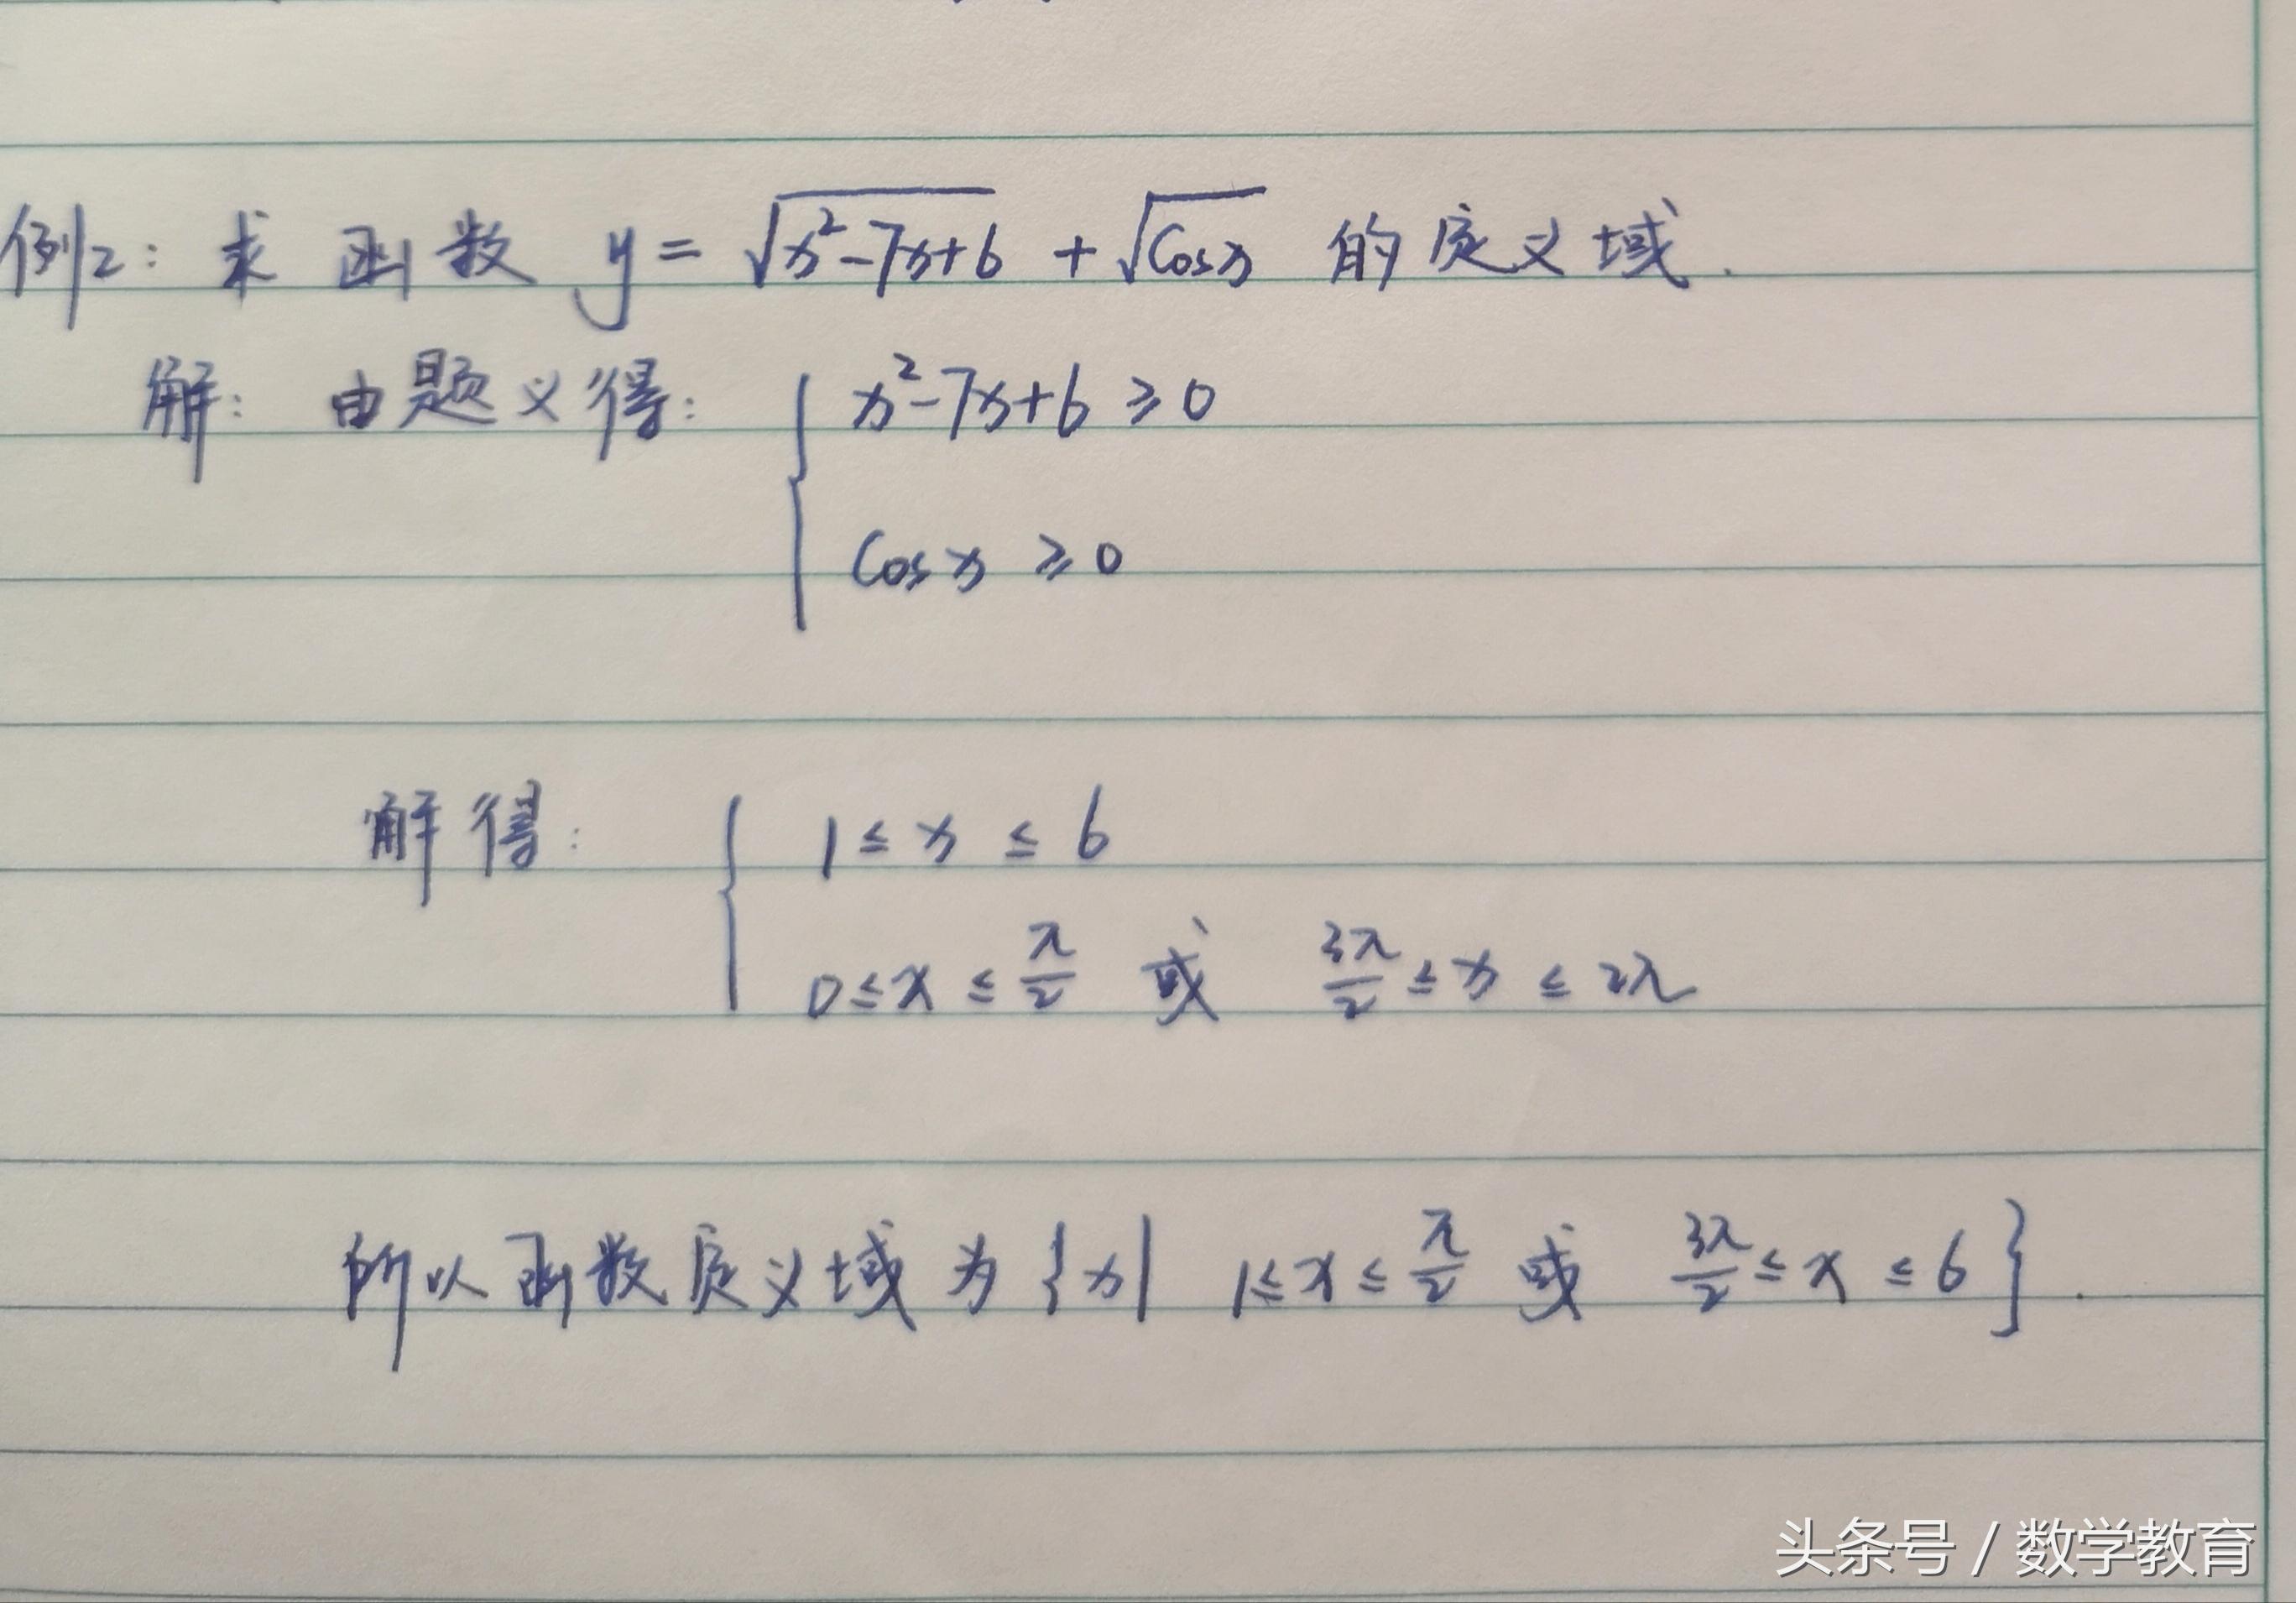 例2: 求函数 y = √(x²-7x+6) + √(cosx) 的定义域.
解: 由题义得: { x²-7x+6 ≥ 0
cosx ≥ 0
解得: { 1 ≤ x ≤ 6
0 ≤ x ≤ π/2 或 3π/2 ≤ x ≤ 2π
所以函数定义域为 {x| 1≤x≤π/2 或 3π/2 ≤ x ≤ 6}.
头条号 / 数学教育